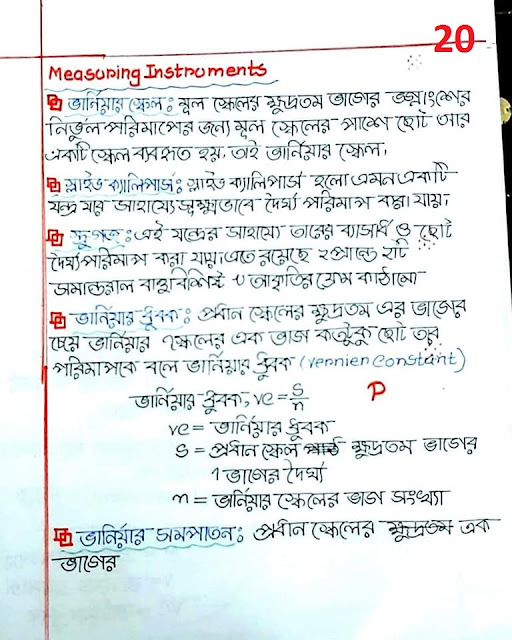 20
Measuring Instruments
ভার্নিয়ার স্কেল: মূল স্কেলের ক্ষুদ্রতম ভাগের ভগ্নাংশের
নির্ভুল পরিমাপের জন্যে মূল স্কেলের পাশে ছোট আর
একটি স্কেল ব্যবহৃত হয়, তাই ভার্নিয়ার স্কেল।
স্লাইড ক্যালিপার্স: স্লাইড ক্যালিপার্স হলো এমন একটি
যন্ত্র যার সাহায্যে সূক্ষ্মভাবে দৈর্ঘ্য পরিমাপ করা যায়।
স্ক্রুগজ: এই যন্ত্রের সাহায্যে তারের ব্যাসার্ধ ও ছোট
দৈর্ঘ্য পরিমাপ করা যায়। এতে রয়েছে ২প্রান্তে ২টি
সমান্তরাল বাহুবিশিষ্ট U আকৃতির ফ্রেম কাঠামো
ভার্নিয়ার ধ্রুবক: প্রধান স্কেলের ক্ষুদ্রতম এর ভাগের
চেয়ে ভার্নিয়ার স্কেলের এক ভাগ কতটুকু ছোট তার
পরিমাপকে বলে ভার্নিয়ার ধ্রুবক (vernien constant)
ভার্নিয়ার ধ্রুবক, vc = s/n P
vc = ভার্নিয়ার ধ্রুবক
s = প্রধান স্কেল ক্ষুদ্রতম ভাগের
1 ভাগের দৈর্ঘ্য
n = ভার্নিয়ার স্কেলের ভাগ সংখ্যা
ভার্নিয়ার সমপাতন: প্রধান স্কেলের ক্ষুদ্রতম এক
ভাগের